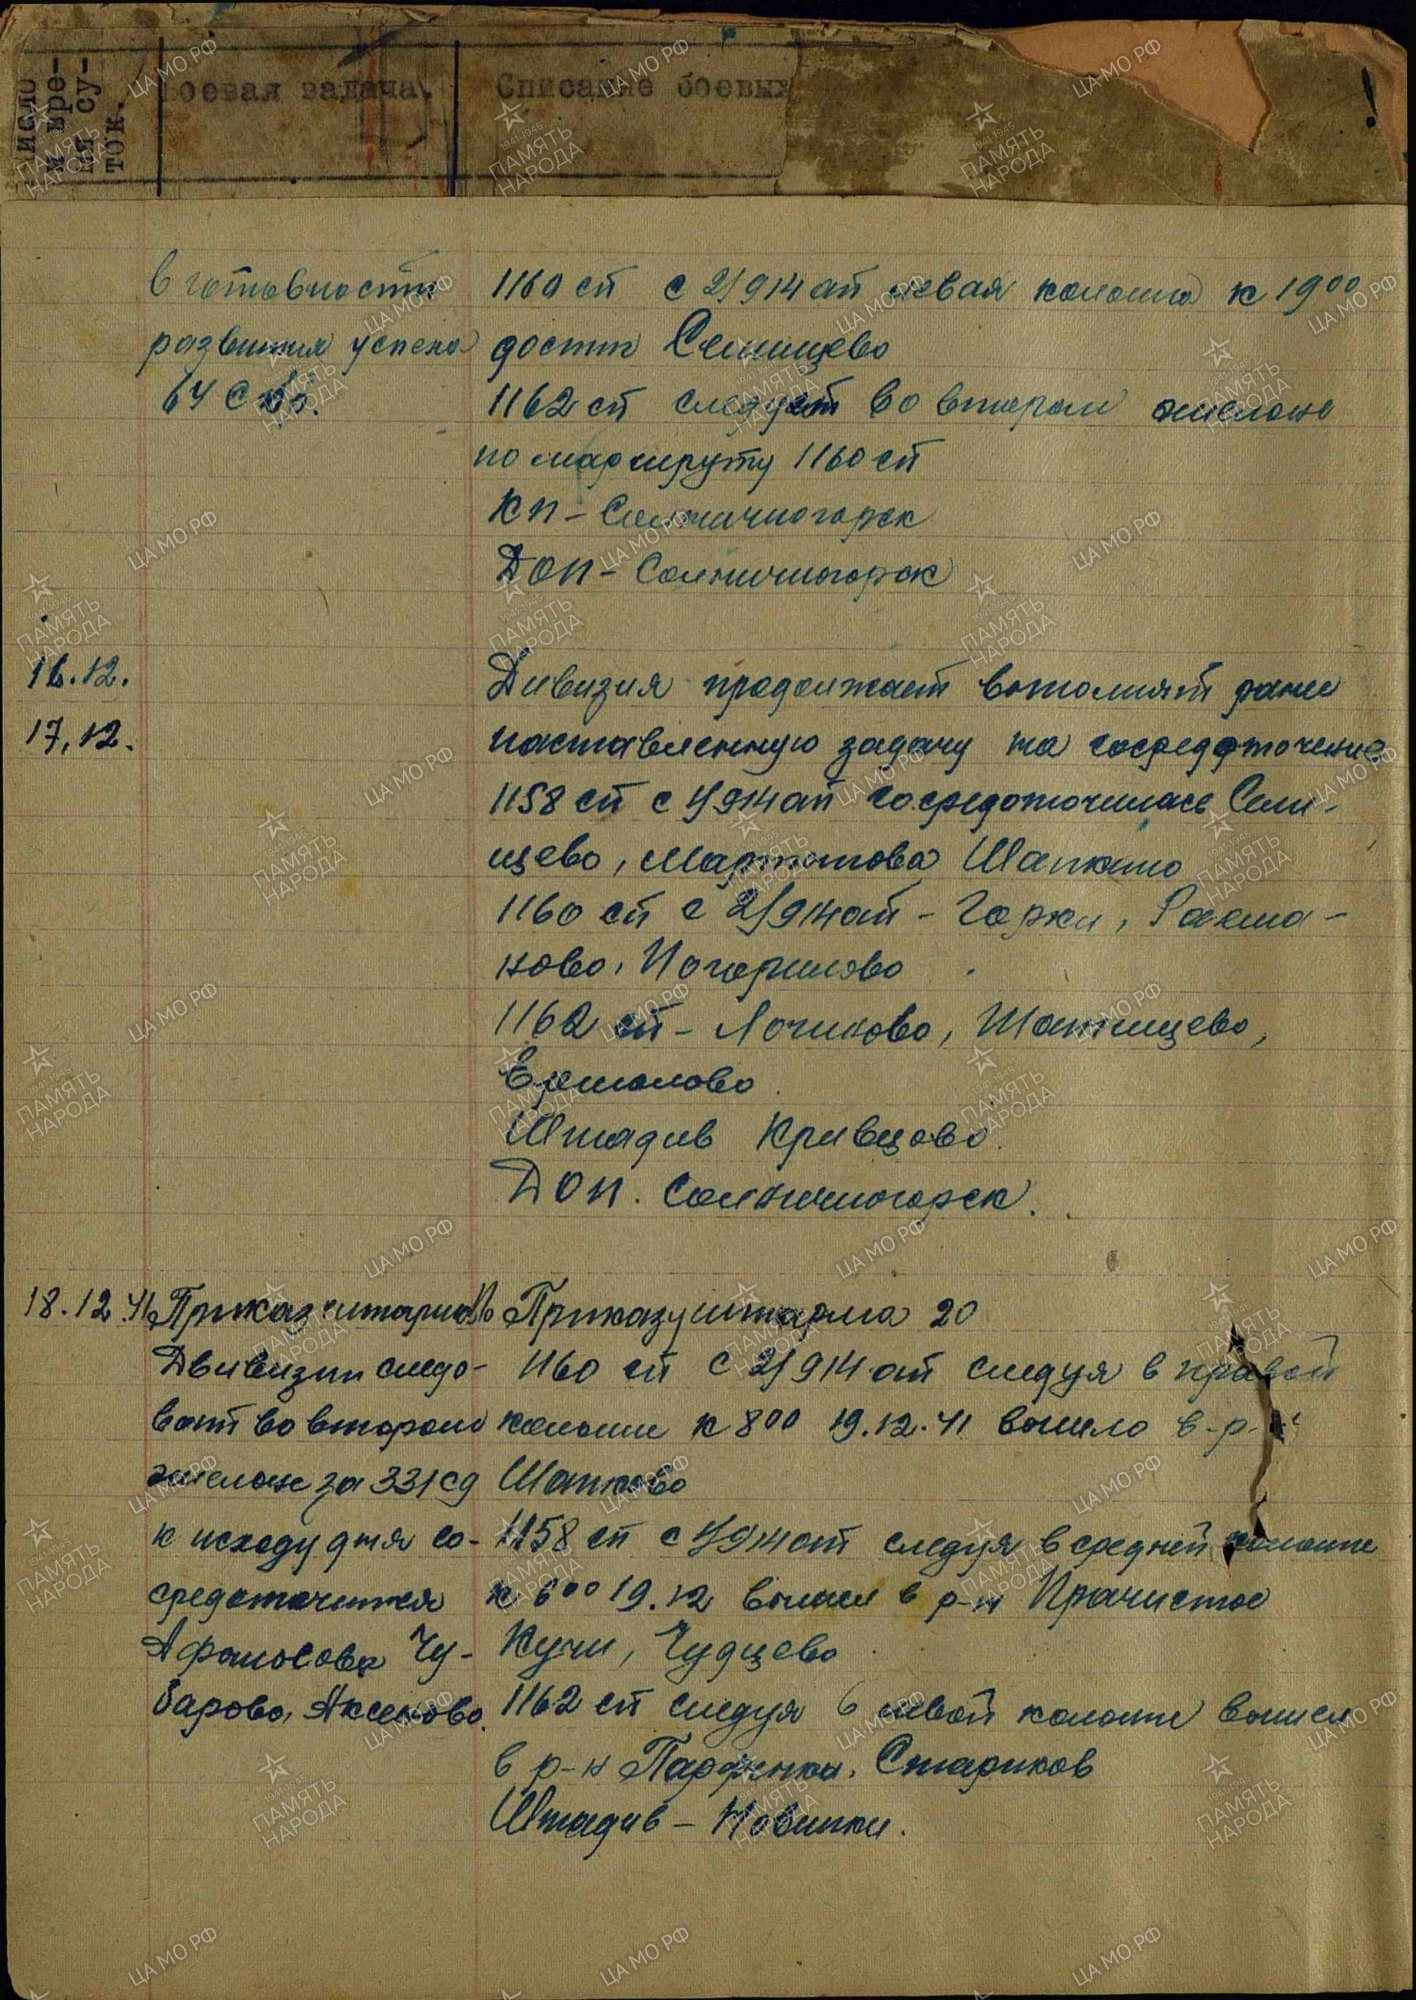 число
и вре-
мя су-
ток.
Боевая задача.
Списание боевых
!
в готовности
развития успеха
64 С бр.
1160 сп с 2/914 ап левая колонна к 19⁰⁰
достиг Селищево
1162 сп следует во втором эшелоне
по маршруту 1160 сп
КП - Солнечногорск
ДОП - Солнечногорск
16.12.
17.12.
Дивизия продолжает выполнят ранее
поставленную задачу на сосредоточение
1158 сп с 1/914 ап сосредоточилась Сели-
щево, Мартынова Шапкино
1160 сп с 2/914 ап - Горки, Рахма-
ново,
1162 сп - Лочиково,
Ермолово
Штадив Кривцово.
ДОП. Солнечногорск.
18.12.41
Приказ штарма
Дивизии следо-
вать во втором
эшелоне за 331 сд
к исходу дня со-
средоточится
Афаносово Чу-
барово, Аксеново.
По Приказу штарма 20
1160 сп с 2/914 ап следуя в правой
колонне к 8⁰⁰ 19.12.41 вышло в р-
Шапково
1158 сп с 1/914 ап следуя в средней колонне
к 6⁰⁰ 19.12 вышел в р-н Пречистое
Кучи, Чудцево
1162 сп следуя в левой колонне вышел
в р-н Стариков
Штадив - Новинки.